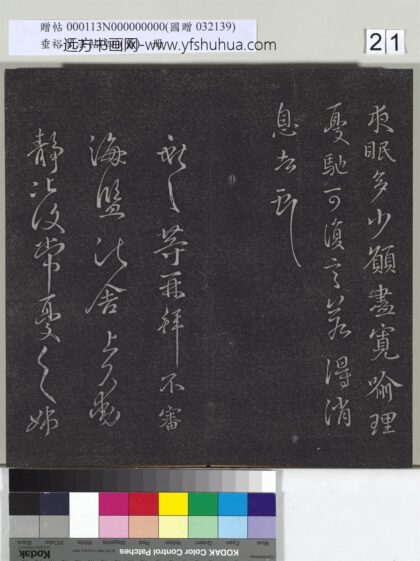 贈帖 000113N000000000(國贈 032139)
垂裕
远方书画网-www.yfshuhua.com
21
求眠多少願盡寬喻理
憂馳可復言若得消
息告
獻之等再拜不審
海鹽諸舍上下動
靜比復常憂之姊
Blue Cyan Green Yellow Red Magenta White 3/Color Black
KODAK Color Control Patches
Kodak